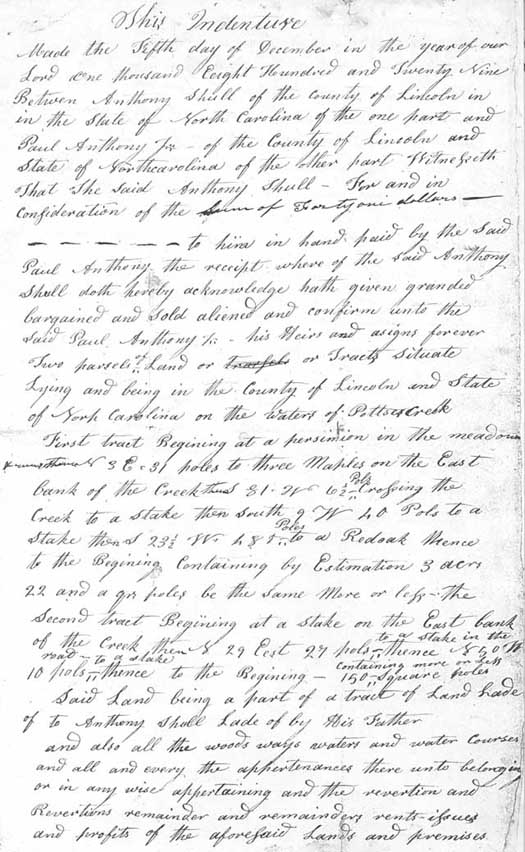 This Indenture
Made the Fifth day of December in the year of our
Lord one thousand Eeight Hundred and Twenty Nine
Betwen Anthony Shull of the county of Lincoln in
in the State of North Carolina of the one part and
Paul Anthony Jr - of the County of Lincoln and
State of Northcarolina of the other part Witnesseth
That The Said Anthony Shull - For and in
Consideration of the Sum of Forty one dollars —
— — — — — — to him in hand paid by the Said
Paul Anthony the receipt where of the said Anthony
Shull doth hereby acknowledge hath given granded
bargained and Sold aliened and confirm unto the
Said Paul Anthony Jr - his Heirs and asigns forever
Two parsels of Land or or Tracts Situate
Lying and being in the County of Lincoln and State
of Norh Carolina on the waters of Potters Creek
First tract Begining at a persimion in the meadow
N 3 E 31 poles to three Maples on the East
bank of the Creek thens S 81 W 6½ Pols Crossing the
Creek to a Stake then South 9 W 40 Pols to a
Stake then S 23½ W 48 Poles to a Redoak thence
to the Begining Containing by Estimation 3 acrs
22 and a qr poles be the same More or less - the
Second tract Begining at a stake on the East bank
of the Creek then N 29 East 27 pols to a stake in the
road thence N 50 W
10 pols to a stake thence to the Begining - containing more or less 150 Square poles
Said Land being a part of a tract of Land
of to Anthony Shull Lade of by His Father
and also all the woods ways waters and water courses
and all and every the appertenances there unto belonging
or in any wise appertaining and the revertion and
Revertions remainder and remainders rents issues
and profits of the aforesaid Lands and premises